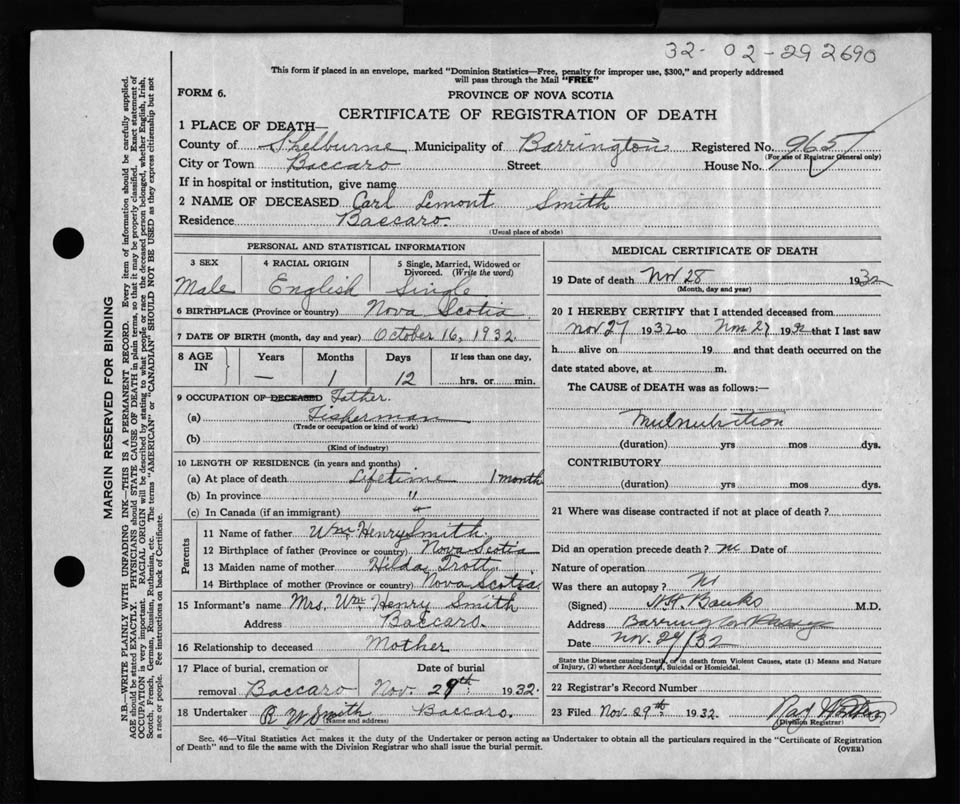 32-02-29 2690
This form if placed in an envelope, marked "Dominion Statistics—Free, penalty for improper use, $300," and properly addressed
will pass through the Mail "FREE"
FORM 6.
PROVINCE OF NOVA SCOTIA
CERTIFICATE OF REGISTRATION OF DEATH
1 PLACE OF DEATH—
County of Shelburne Municipality of Barrington Registered No. 965
(For use of Registrar General only)
City or Town Baccaro Street House No.
If in hospital or institution, give name
2 NAME OF DECEASED Carl Lemont Smith
Residence Baccaro.
(Usual place of abode)
PERSONAL AND STATISTICAL INFORMATION
3 SEX 4 RACIAL ORIGIN 5 Single, Married, Widowed or
Divorced. (Write the word)
Male English Single
6 BIRTHPLACE (Province or country) Nova Scotia
7 DATE OF BIRTH (month, day and year) October 16, 1932.
8 AGE IN Years Months Days If less than one day,
— 1 12 hrs. or min.
9 OCCUPATION OF DECEASED Father.
(a) Fisherman
(Trade or occupation or kind of work)
(b)
(Kind of industry)
10 LENGTH OF RESIDENCE (in years and months)
(a) At place of death Lifetime 1 month
(b) In province "
(c) In Canada (if an immigrant) "
Parents
11 Name of father Wm. Henry Smith
12 Birthplace of father (Province or country) Nova Scotia
13 Maiden name of mother Hilda Trott
14 Birthplace of mother (Province or country) Nova Scotia
15 Informant's name Mrs. Wm. Henry Smith
Address Baccaro.
16 Relationship to deceased Mother
17 Place of burial, cremation or Date of burial
removal Baccaro Nov. 29th 1932.
18 Undertaker R W Smith Baccaro.
(Name and address)
MEDICAL CERTIFICATE OF DEATH
19 Date of death Nov 28 1932
(Month, day and year)
20 I HEREBY CERTIFY that I attended deceased from
Nov 27 1932 to Nov 27 1932 that I last saw
h alive on 19 and that death occurred on the
date stated above, at m.
The CAUSE of DEATH was as follows:—
Mulnutrition
(duration) yrs mos dys.
CONTRIBUTORY
(duration) yrs mos dys.
21 Where was disease contracted if not at place of death?
Did an operation precede death? no Date of
Nature of operation
Was there an autopsy? No
(Signed) Banks M.D.
Address Barrington Passage
Date Nov. 29/32
State the Disease causing Death, or in death from Violent Causes, state (1) Means and Nature
of Injury, (2) whether Accidental, Suicidal or Homicidal.
22 Registrar's Record Number
23 Filed Nov. 29th 1932.
(Division Registrar)
Sec. 46—Vital Statistics Act makes it the duty of the Undertaker or person acting as Undertaker to obtain all the particulars required in the "Certificate of Registration
of Death" and to file the same with the Division Registrar who shall issue the burial permit.
(OVER)
MARGIN RESERVED FOR BINDING
N.B.—WRITE PLAINLY WITH UNFADING INK—THIS IS A PERMANENT RECORD. Every item of information should be carefully supplied.
AGE should be stated EXACTLY. PHYSICIANS should STATE CAUSE OF DEATH in plain terms, so that it may be properly classified. Exact statement of
OCCUPATION is very important. RACIAL ORIGIN will be described by stating to what people or race the deceased person belonged, whether English, Irish,
Scotch, French, German, Russian, Ruthenian, etc. The terms "AMERICAN" or "CANADIAN" SHOULD NOT BE USED as they express citizenship but not
a race or people. See instructions on back of Certificate.